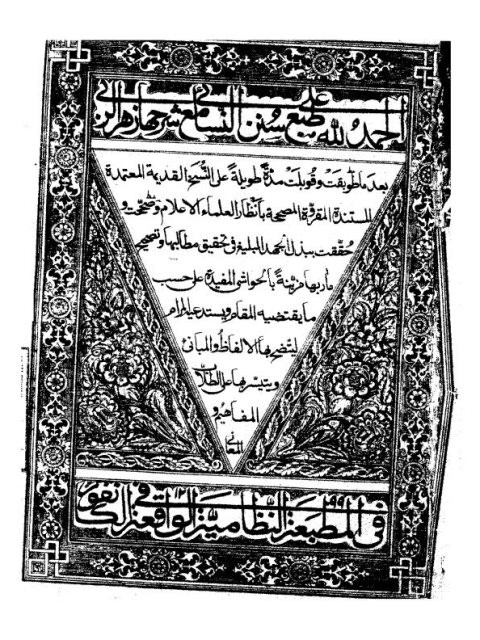 الحمد لله على طبع سنن النسائي مع شرحه زهر الربى
بعد ما طوبقت وقوبلت مدة طويلة على النسخ القديمة المعتمدة
المستندة المقروة المصححة بأنظار العلماء الاعلام وصححت و
حققت ببذل الجهد البليغ في تحقيق مطالبها وتصحيح
مآربها مزينة بالحواشي المفيدة على حسب
ما يقتضيه المقام ويستدعيه المرام
ليتضح بها الالفاظ والمباني
ويتيسر بها على الطلاب
المفاهيم و
المعاني
في المطبعة النظامية الواقعة في الكانفور